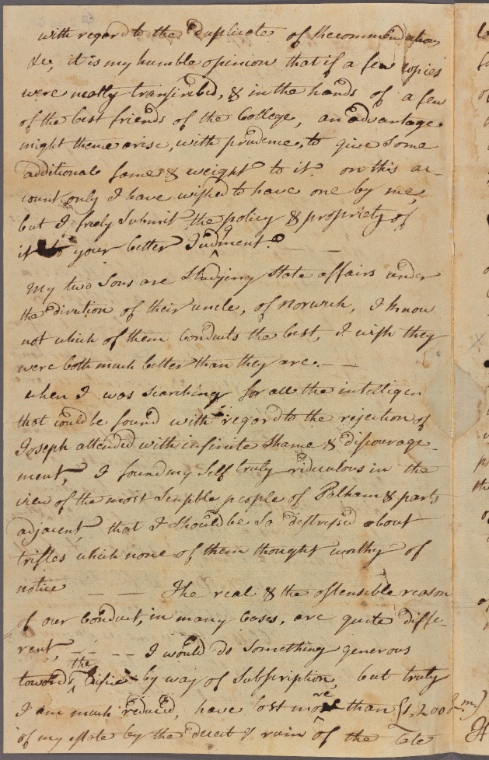 with regard to the duplicates of the commendation
&c, it is my humble opinion that if a few copies
were neatly transcribed, & in the hands of a few
of the best friends of the College, an advantage
might thence arise, with prudence, to give some
additional fame & weight to it. on this ac-
count only I have wished to have one by me,
but I freely submit the policy & propriety of
it to your better Judgment.
My two Sons are Studying State affairs under
the direction of their uncle, of Norwich, I know
not which of them conducts the best, I wish they
were both much better than they are. —
when I was searching for all the intelligen
that could be found with regard to the rejection of
Joseph attended with infinite shame & discourage-
ment, I found my self truly ridiculous in the
view of the most Sensible people of Pelham & parts
adjacent, that I should be so distressed about
trifles which none of them thought worthy of
notice — The real & the ostensible reason
of our Conduct, in many Cases, are quite diffe-
rent, — — — I would do something generous
toward the by way of Subscription, but truly
I am much reduced, have lost more than £1,200
of my estate by the deceit & ruin of the